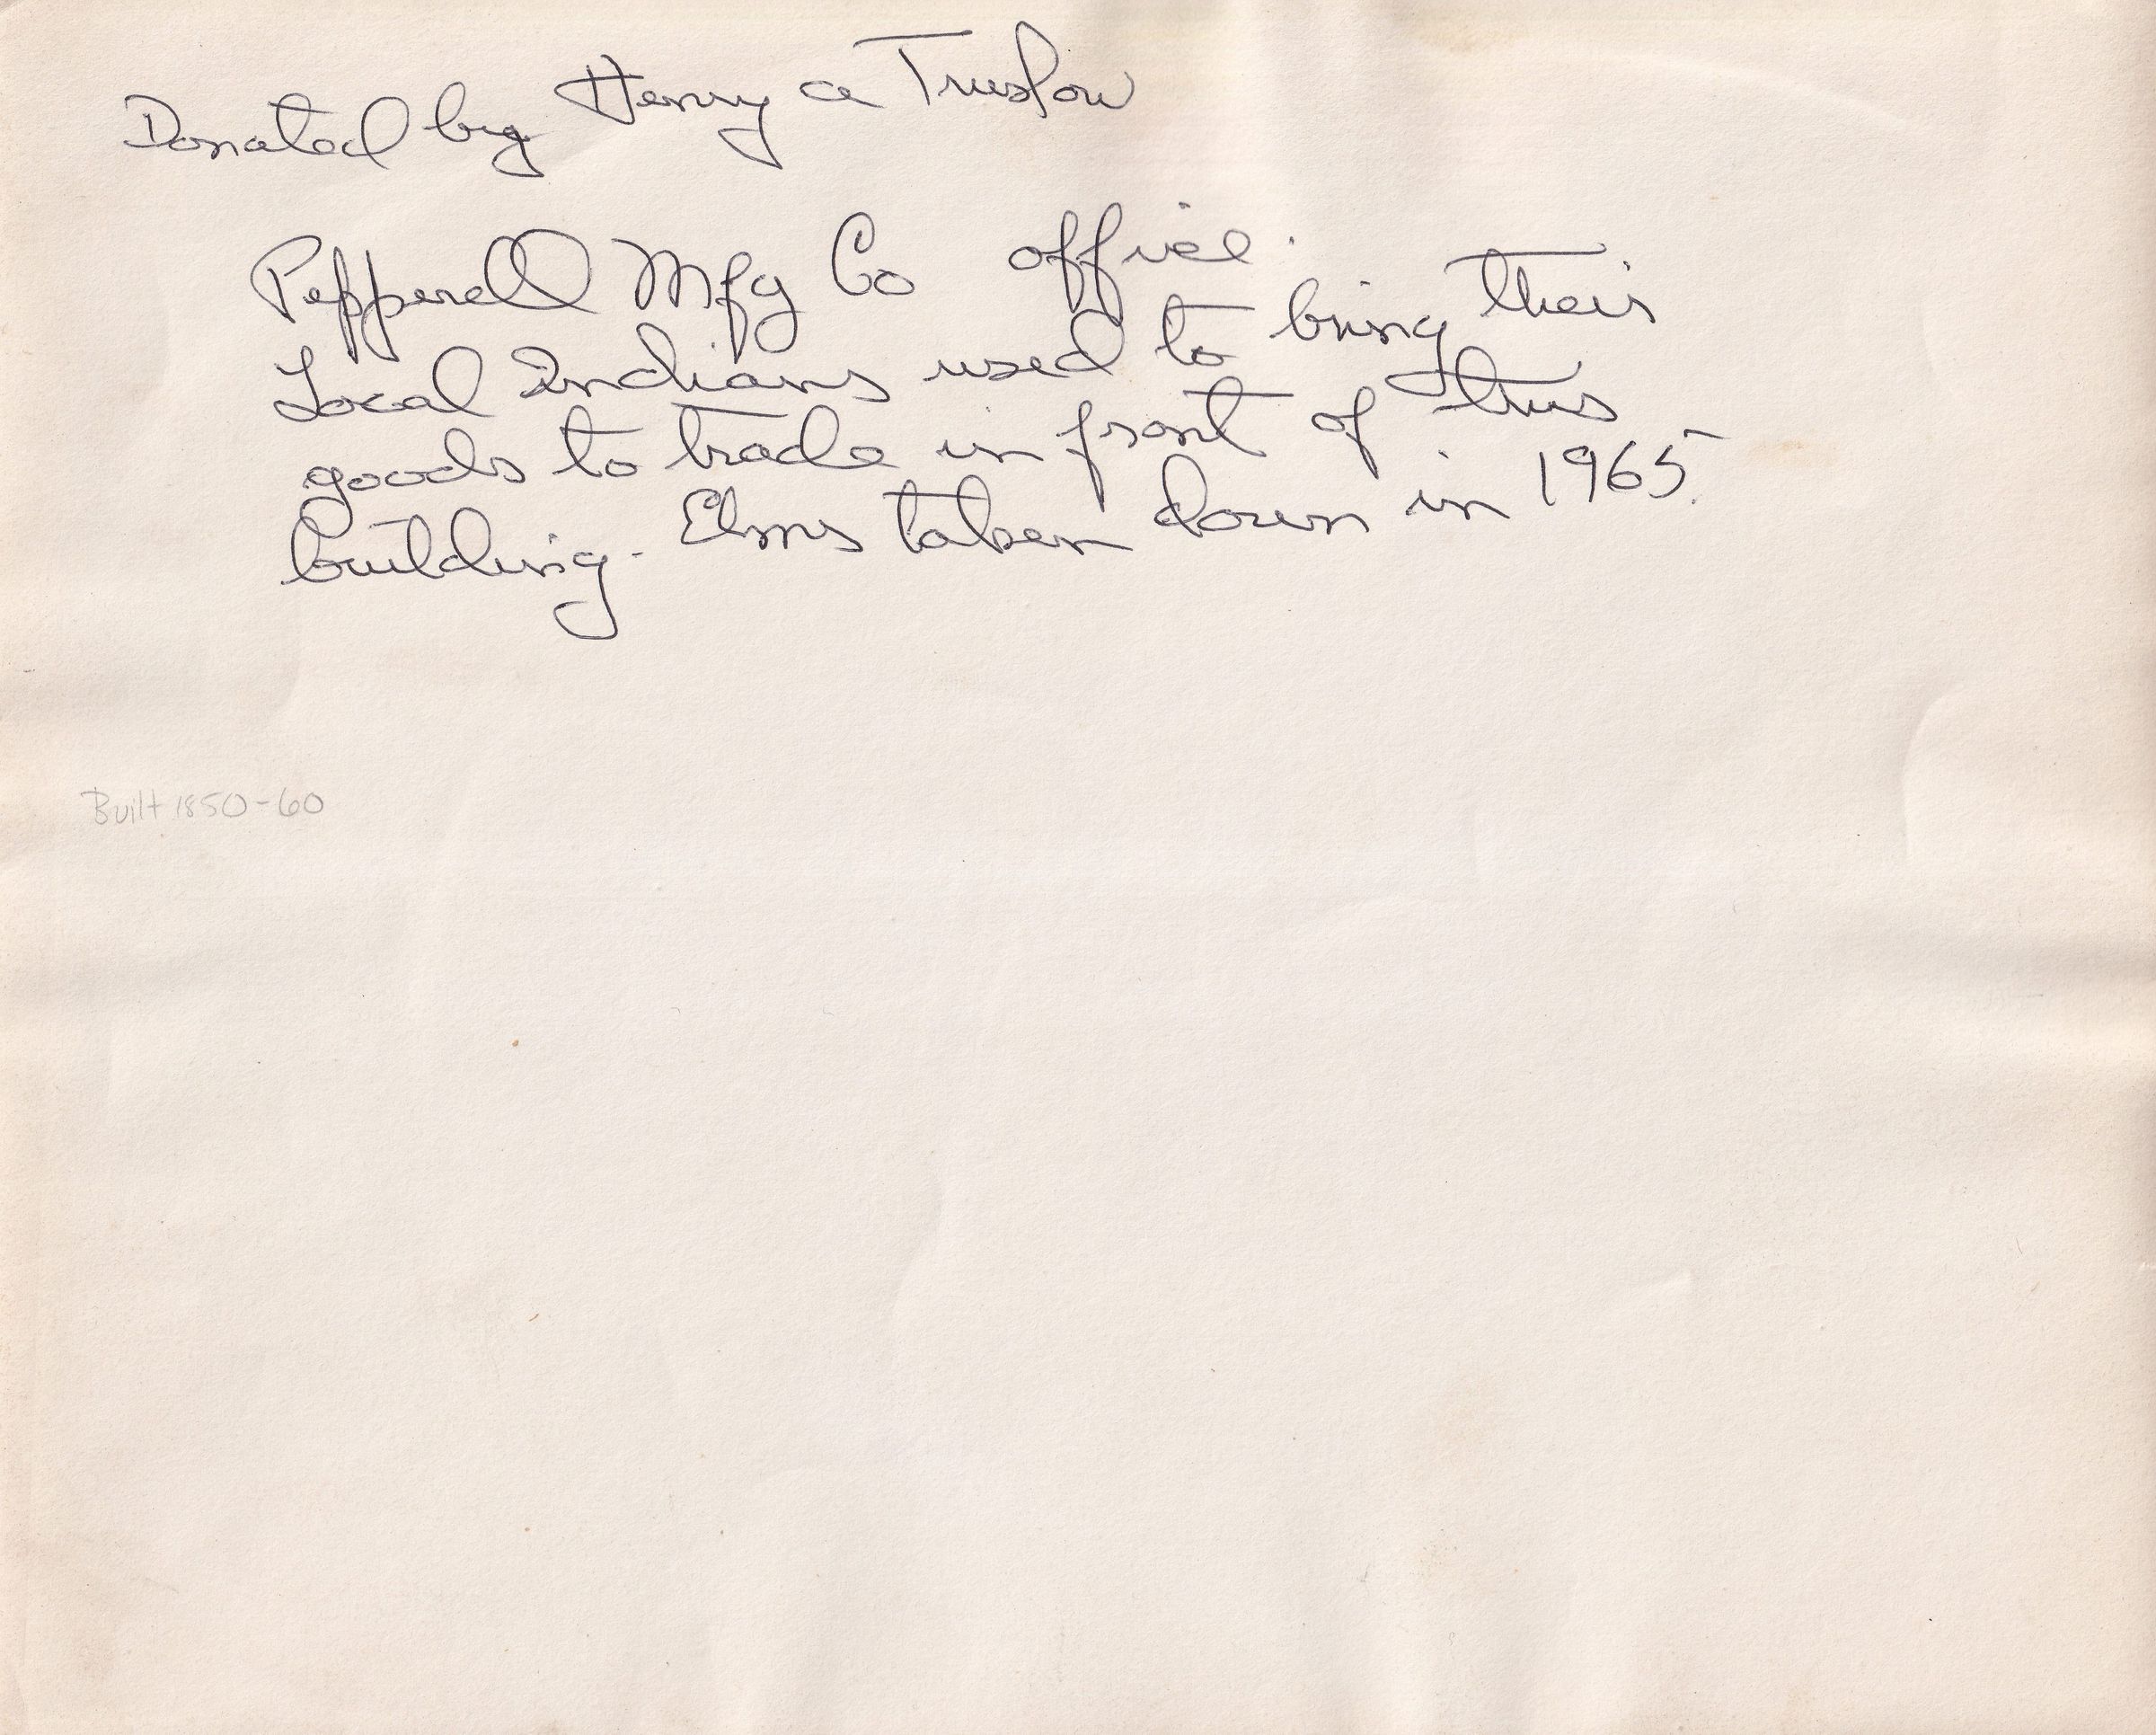 Donated by Henry a Truslow
Pepperell Mfg Co office.
Local Indians used to bring their
goods to trade in front of this
building. Elms taken down in 1965.
Built 1850-60